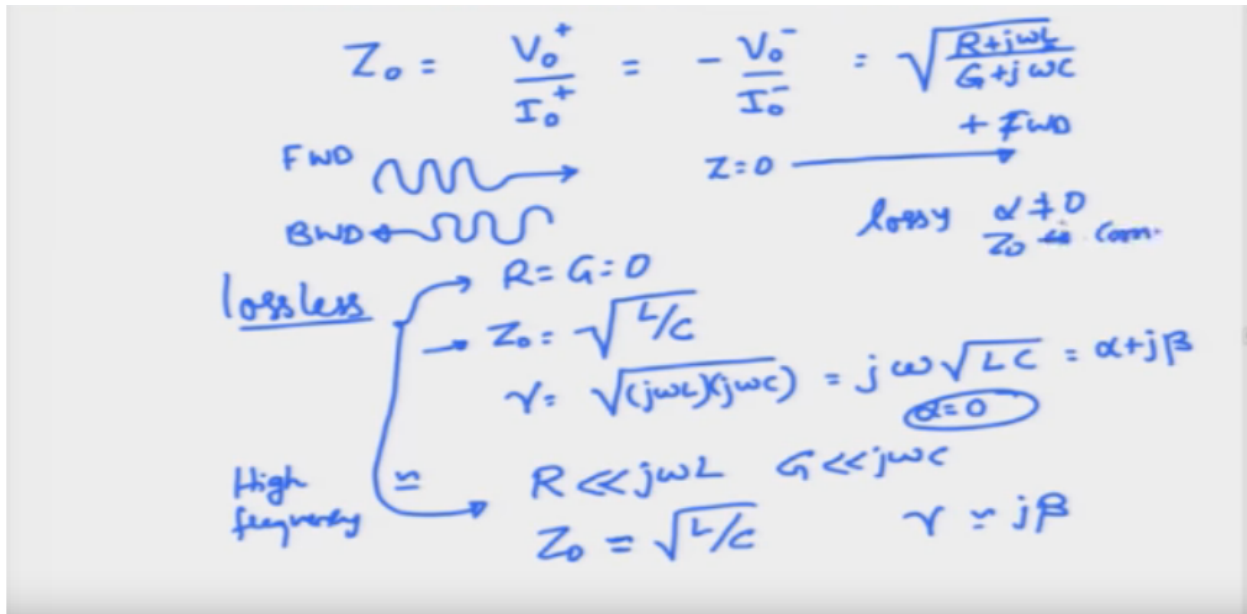 Z₀ = V₀⁺ / I₀⁺ = - V₀⁻ / I₀⁻ = √((R+jωL) / (G+jωC))
+ FWD
FWD
Z=0
BWD
lossy α≠0
Z₀ is Com
lossless
R=G=0
Z₀ = √(L/C)
γ = √((jωL)(jωC)) = jω√(LC) = α+jβ
α=0
High frequency ≃
R ≪ jωL G ≪ jωC
Z₀ = √(L/C) γ ≃ jβ